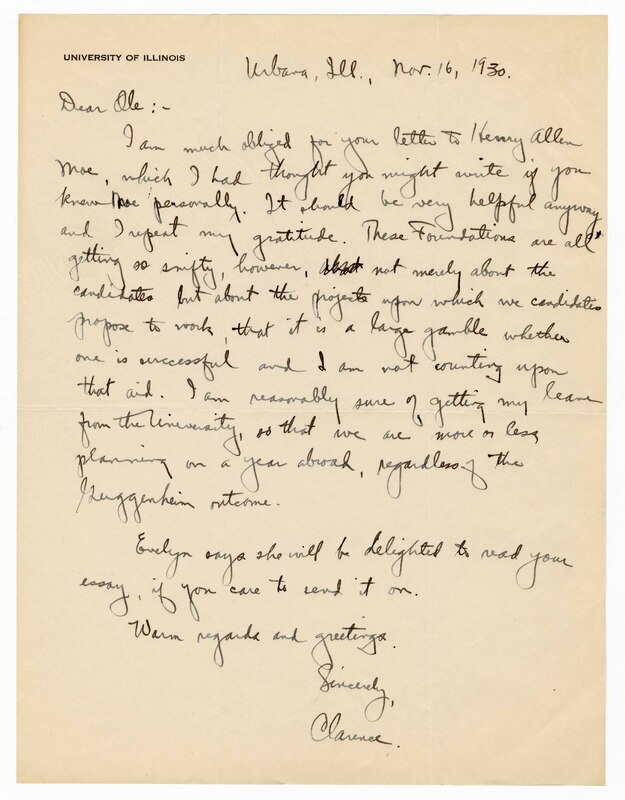 UNIVERSITY OF ILLINOIS
Urbana, Ill., Nov. 16, 1930.
Dear Ole :-
I am much obliged for your letter to Henry Allen
Moe, which I had thought you might write if you
knew Moe personally. It should be very helpful anyway
and I repeat my gratitude. These Foundations are all
getting so snifty, however, not merely about the
candidates but about the projects upon which we candidates
propose to work, that it is a large gamble whether
one is successful and I am not counting upon
that aid. I am reasonably sure of getting my leave
from the University, so that we are more or less
planning on a year abroad, regardless of the
Guggenheim outcome.
Evelyn says she will be delighted to read your
essay, if you care to send it on.
Warm regards and greetings.
Sincerely,
Clarence.